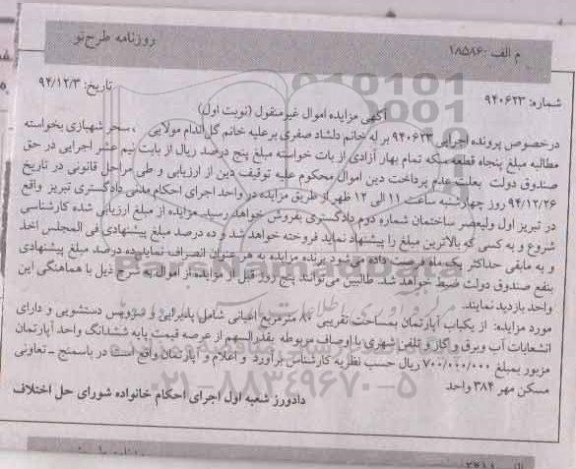 م الف ۱۸۵۸۶۰ روزنامه طرح نو
شماره: ۹۴۰۶۲۳ تاریخ: ۹۴/۱۲/۳
آگهی مزایده اموال غیرمنقول (نوبت اول)
درخصوص پرونده اجرایی ۹۴۰۶۲۳ بر له خانم دلشاد صفری برعلیه خانم گل اندام مولایی ، سحر شهبازی بخواسته
مطالبه مبلغ پنجاه قطعه سکه تمام بهار آزادی از بات خواسته مبلغ پنج درصد ریال از بابت نیم عشر اجرایی در حق
صندوق دولت بعلت عدم پرداخت دین اموال محکوم علیه توقیف دین از ارزیابی و طی مراحل قانونی در تاریخ
۹۴/۱۲/۲۶ روز چهارشنبه ساعت ۱۱ الی ۱۲ ظهر از طریق مزایده در واحد اجرای احکام مدنی دادگستری تبریز واقع
در تبریز اول ولیعصر ساختمان شماره دوم دادگستری بفروش خواهد رسید. مزایده از مبلغ ارزیابی شده کارشناسی
شروع و به کسی که بالاترین مبلغ را پیشنهاد نماید فروخته خواهد شد و ده درصد مبلغ پیشنهادی فی المجلس اخذ
و به مابقی حداکثر یک ماه فرصت داده می‌شود برنده مزایده به هر عنوان انصراف نماید ده درصد مبلغ پیشنهادی
بنفع صندوق دولت ضبط خواهد شد. طالبین می‌توانند پنج روز قبل از مزایده از اموال به شرح ذیل با هماهنگی این
واحد بازدید نمایند.
مورد مزایده: از یکباب آپارتمان بمساحت تقریبی مترمربع اعیانی شامل پذیرایی و سرویس دستشویی و دارای
انشعابات آب و برق و گاز و تلفن شهری با اوصاف مربوطه بقدرالسهم از عرصه قیمت پایه ششدانگ واحد آپارتمان
مزبور بمبلغ ۷۰۰/۰۰۰/۰۰۰ ریال حسب نظریه کارشناس برآورد و اعلام و آپارتمان واقع است در باسمنج ـ تعاونی
مسکن مهر ۳۸۴ واحد
۰۲۱-۸۸۳۴۹۶۷۰-۵
دادورز شعبه اول اجرای احکام خانواده شورای حل اختلاف